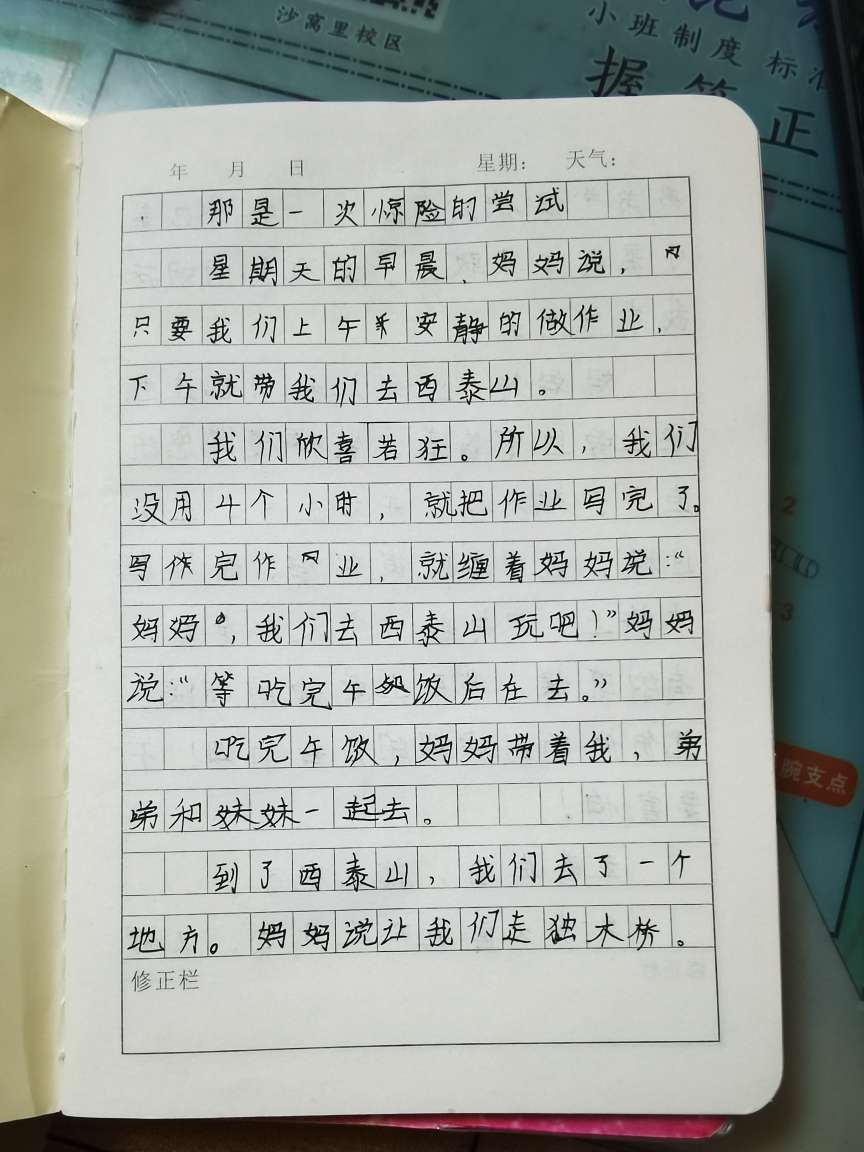 沙窝里校区
小班制度 标准
握笔 正
年 月 日 星期： 天气：
那是一次惊险的尝试
星期天的早晨，妈妈说，
只要我们上午安静的做作业，
下午就带我们去西泰山。
我们欣喜若狂。所以，我们
没用4个小时，就把作业写完了。
写完作业，就缠着妈妈说：“
妈妈，我们去西泰山玩吧！”妈妈
说：“等吃完午饭后在去。”
吃完午饭，妈妈带着我，弟
弟和妹妹一起去。
到了西泰山，我们去了一个
地方。妈妈说让我们走独木桥。
修正栏
2
3
腕支点